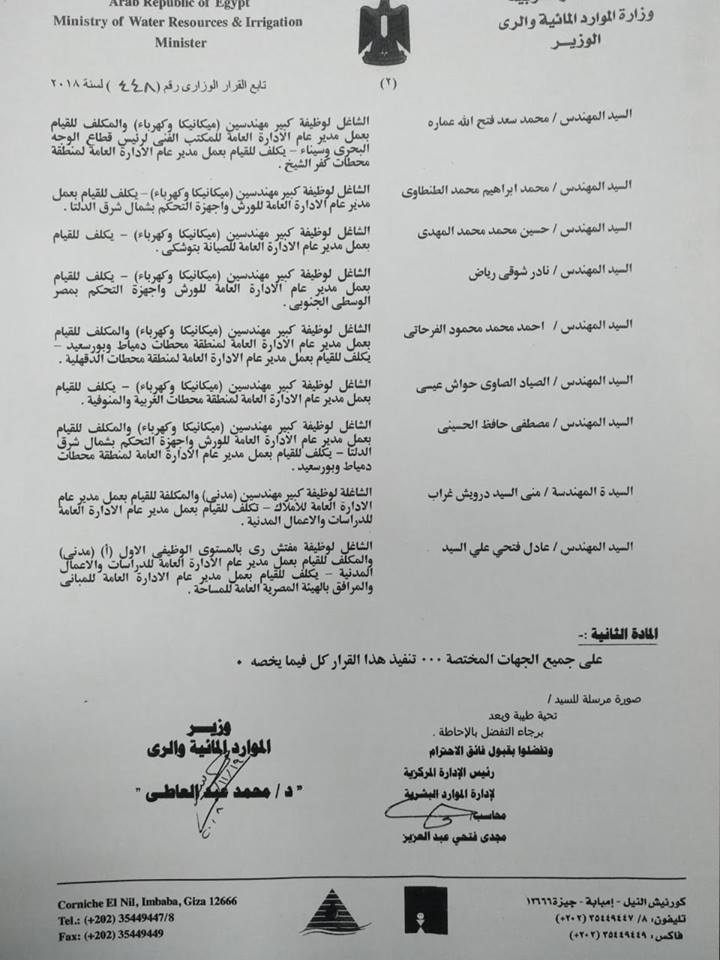 Arab Republic of Egypt
Ministry of Water Resources & Irrigation
Minister
وزارة الموارد المائية والرى
الوزير
(٢)
تابع القرار الوزارى رقم (٤٤٨) لسنة ٢٠١٨
السيد المهندس / محمد سعد فتح الله عماره
الشاغل لوظيفة كبير مهندسين (ميكانيكا وكهرباء) والمكلف للقيام
بعمل مدير عام الادارة العامة للمكتب الفنى لرئيس قطاع الوجه
البحرى وسيناء – يكلف للقيام بعمل مدير عام الادارة العامة لمنطقة
محطات كفر الشيخ .
السيد المهندس / محمد ابراهيم محمد الطنطاوى
الشاغل لوظيفة كبير مهندسين (ميكانيكا وكهرباء) – يكلف للقيام بعمل
مدير عام الادارة العامة للورش واجهزة التحكم بشمال شرق الدلتا .
السيد المهندس / حسين محمد محمد المهدى
الشاغل لوظيفة كبير مهندسين (ميكانيكا وكهرباء) – يكلف للقيام
بعمل مدير عام الادارة العامة للصيانة بتوشكى .
السيد المهندس / نادر شوقى رياض
الشاغل لوظيفة كبير مهندسين (ميكانيكا وكهرباء) – يكلف للقيام
بعمل مدير عام الادارة العامة للورش واجهزة التحكم بمصر
الوسطى الجنوبى .
السيد المهندس / احمد محمد محمود الفرحاتى
الشاغل لوظيفة كبير مهندسين (ميكانيكا وكهرباء) والمكلف للقيام
بعمل مدير عام الادارة العامة لمنطقة محطات دمياط وبورسعيد –
يكلف للقيام بعمل مدير عام الادارة العامة لمنطقة محطات الدقهلية .
السيد المهندس / الصياد الصاوى حواش عيسى
الشاغل لوظيفة كبير مهندسين (ميكانيكا وكهرباء) – يكلف للقيام
بعمل مدير عام الادارة العامة لمنطقة محطات الغربية والمنوفية .
السيد المهندس / مصطفى حافظ الحسينى
الشاغل لوظيفة كبير مهندسين (ميكانيكا وكهرباء) والمكلف للقيام
بعمل مدير عام الادارة العامة للورش واجهزة التحكم بشمال شرق
الدلتا – يكلف للقيام بعمل مدير عام الادارة العامة لمنطقة محطات
دمياط وبورسعيد .
السيد ة المهندسة / منى السيد درويش غراب
الشاغلة لوظيفة كبير مهندسين (مدنى) والمكلفة للقيام بعمل مدير عام
الادارة العامة للاملاك – تكلف للقيام بعمل مدير عام الادارة العامة
للدراسات والاعمال المدنية .
السيد المهندس / عادل فتحي علي السيد
الشاغل لوظيفة مفتش رى بالمستوى الوظيفى الاول (أ) (مدنى)
والمكلف للقيام بعمل مدير عام الادارة العامة للدراسات والاعمال
المدنية – يكلف للقيام بعمل مدير عام الادارة العامة للمبانى
والمرافق بالهيئة المصرية العامة للمساحة .
المادة الثانية :-
على جميع الجهات المختصة ٠٠٠ تنفيذ هذا القرار كل فيما يخصه ٠
صورة مرسلة للسيد /
تحية طيبة وبعد
برجاء التفضل بالإحاطة .
وتفضلوا بقبول فائق الاحترام
رئيس الإدارة المركزية
لإدارة الموارد البشرية
محاسب/
مجدى فتحي عبد العزيز
وزير
الموارد المائية والرى
" د / محمد عبد العاطى "
Corniche El Nil, Imbaba, Giza 12666
Tel.: (+202) 35449447/8
Fax: (+202) 35449449
كورنيش النيل - إمبابة - جيزة ١٢٦٦٦
تليفون: ٨/ ٣٥٤٤٩٤٤٧ (٢٠٢+)
فاكس: ٣٥٤٤٩٤٤٩ (٢٠٢+)